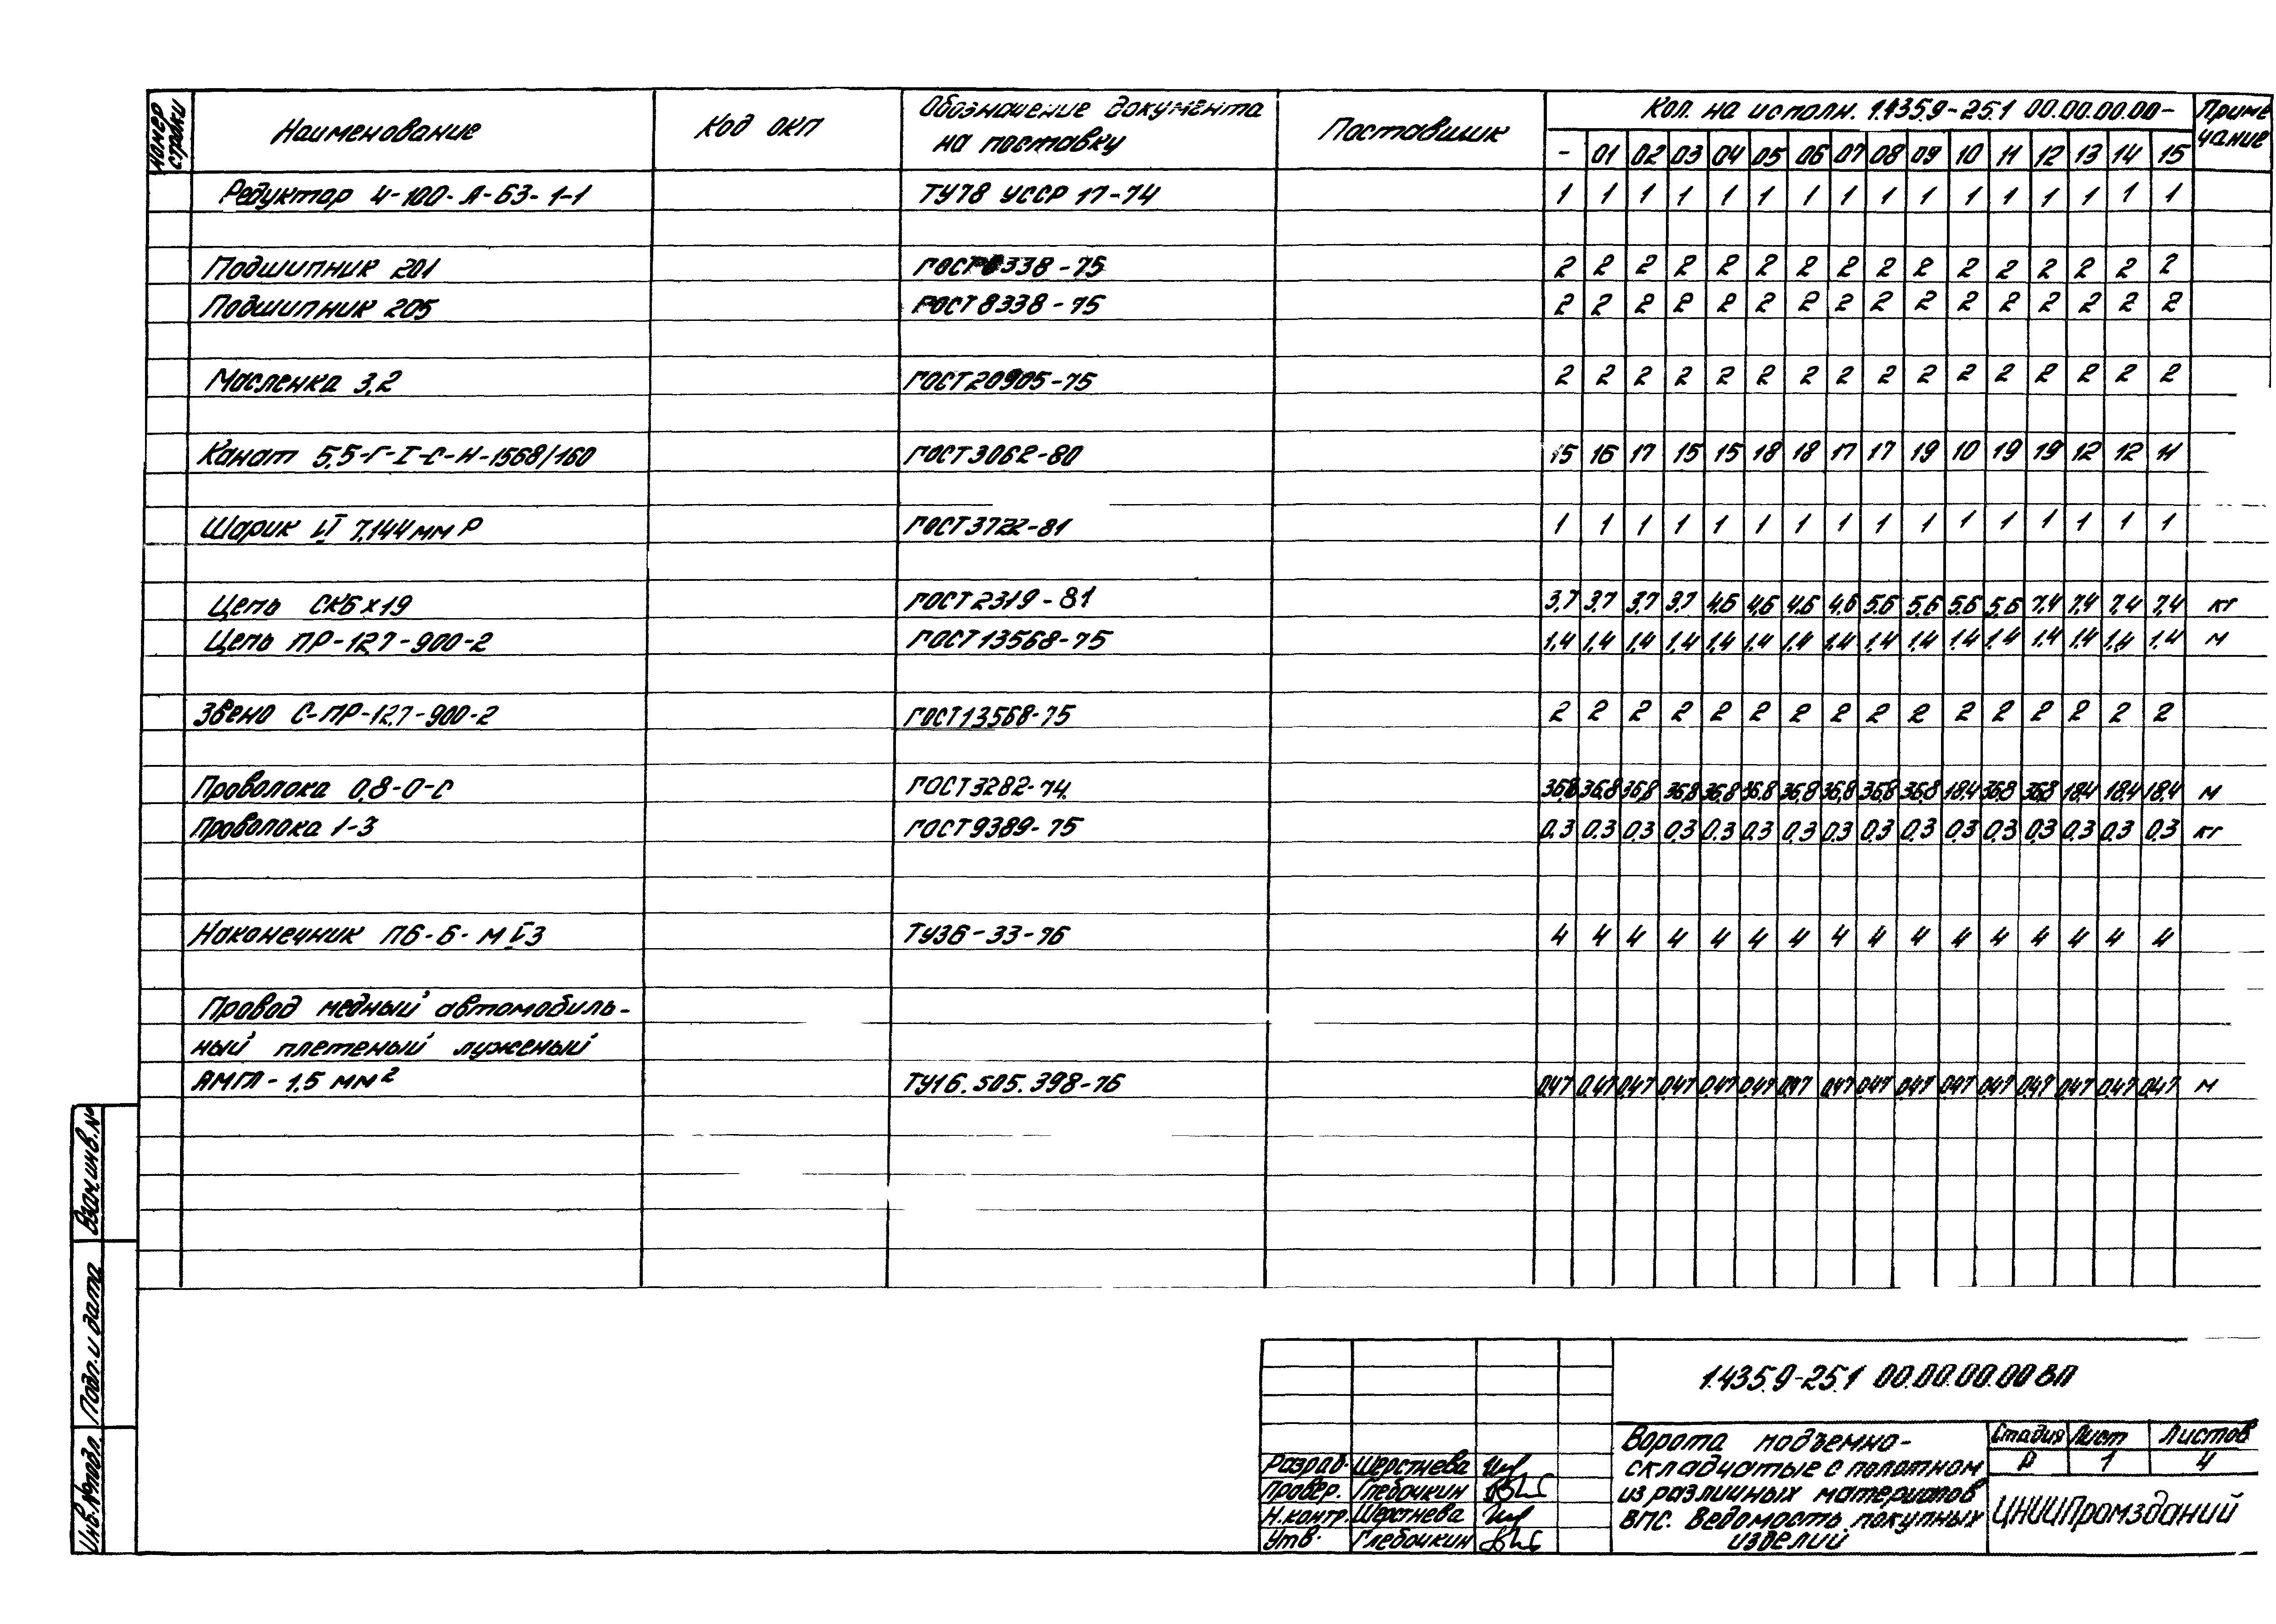 Номер строки Наименование Код ОКП Обозначение документа на поставку Поставщик Кол. на исполн. 1.435.9-25.1 00.00.00.00- Примечание
- 01 02 03 04 05 06 07 08 09 10 11 12 13 14 15
Редуктор Ч-100-А-63-1-1 ТУ78 УССР 17-74 1 1 1 1 1 1 1 1 1 1 1 1 1 1 1 1
Подшипник 201 ГОСТ8338-75 2 2 2 2 2 2 2 2 2 2 2 2 2 2 2 2
Подшипник 205 ГОСТ8338-75 2 2 2 2 2 2 2 2 2 2 2 2 2 2 2 2
Масленка 3,2 ГОСТ20905-75 2 2 2 2 2 2 2 2 2 2 2 2 2 2 2 2
Канат 5,5-Г-I-С-Н-1568/160 ГОСТ3062-80 15 16 17 15 15 18 18 17 17 19 10 19 19 12 12 11
Шарик VI 7,144мм Р ГОСТ3722-81 1 1 1 1 1 1 1 1 1 1 1 1 1 1 1 1
Цепь СК6х19 ГОСТ2319-81 3,7 3,7 3,7 3,7 4,6 4,6 4,6 4,6 5,6 5,6 5,6 5,6 7,4 7,4 7,4 7,4 кг
Цепь ПР-12,7-900-2 ГОСТ13568-75 1,4 1,4 1,4 1,4 1,4 1,4 1,4 1,4 1,4 1,4 1,4 1,4 1,4 1,4 1,4 1,4 м
Звено С-ПР-12,7-900-2 ГОСТ13568-75 2 2 2 2 2 2 2 2 2 2 2 2 2 2 2 2
Проволока 0,8-О-С ГОСТ3282-74. 36,8 36,8 36,8 36,8 36,8 36,8 36,8 36,8 36,8 36,8 18,4 36,8 36,8 18,4 18,4 18,4 м
Проволока 1-3 ГОСТ9389-75 0,3 0,3 0,3 0,3 0,3 0,3 0,3 0,3 0,3 0,3 0,3 0,3 0,3 0,3 0,3 0,3 кг
Наконечник П6-6-МУЗ ТУ36-33-76 4 4 4 4 4 4 4 4 4 4 4 4 4 4 4 4
Провод медный автомобиль-
ный плетеный луженый
АМГЛ-1,5 мм² ТУ16.505.398-76 0,47 0,47 0,47 0,47 0,47 0,47 0,47 0,47 0,47 0,47 0,47 0,47 0,47 0,47 0,47 0,47 м
Взам.инв.№
Подп.и дата
Инв.№подл.
1.435.9-25.1 00.00.00.00 ВП
Разраб. Шерстнева
Провер. Глебочкин
Н.контр. Шерстнева
Утв. Глебочкин
Ворота подъемно-
складчатые с полотном
из различных материалов
ВПС. Ведомость покупных
изделий
Стадия Лист Листов
Р 1 4
ЦНИИПромзданий